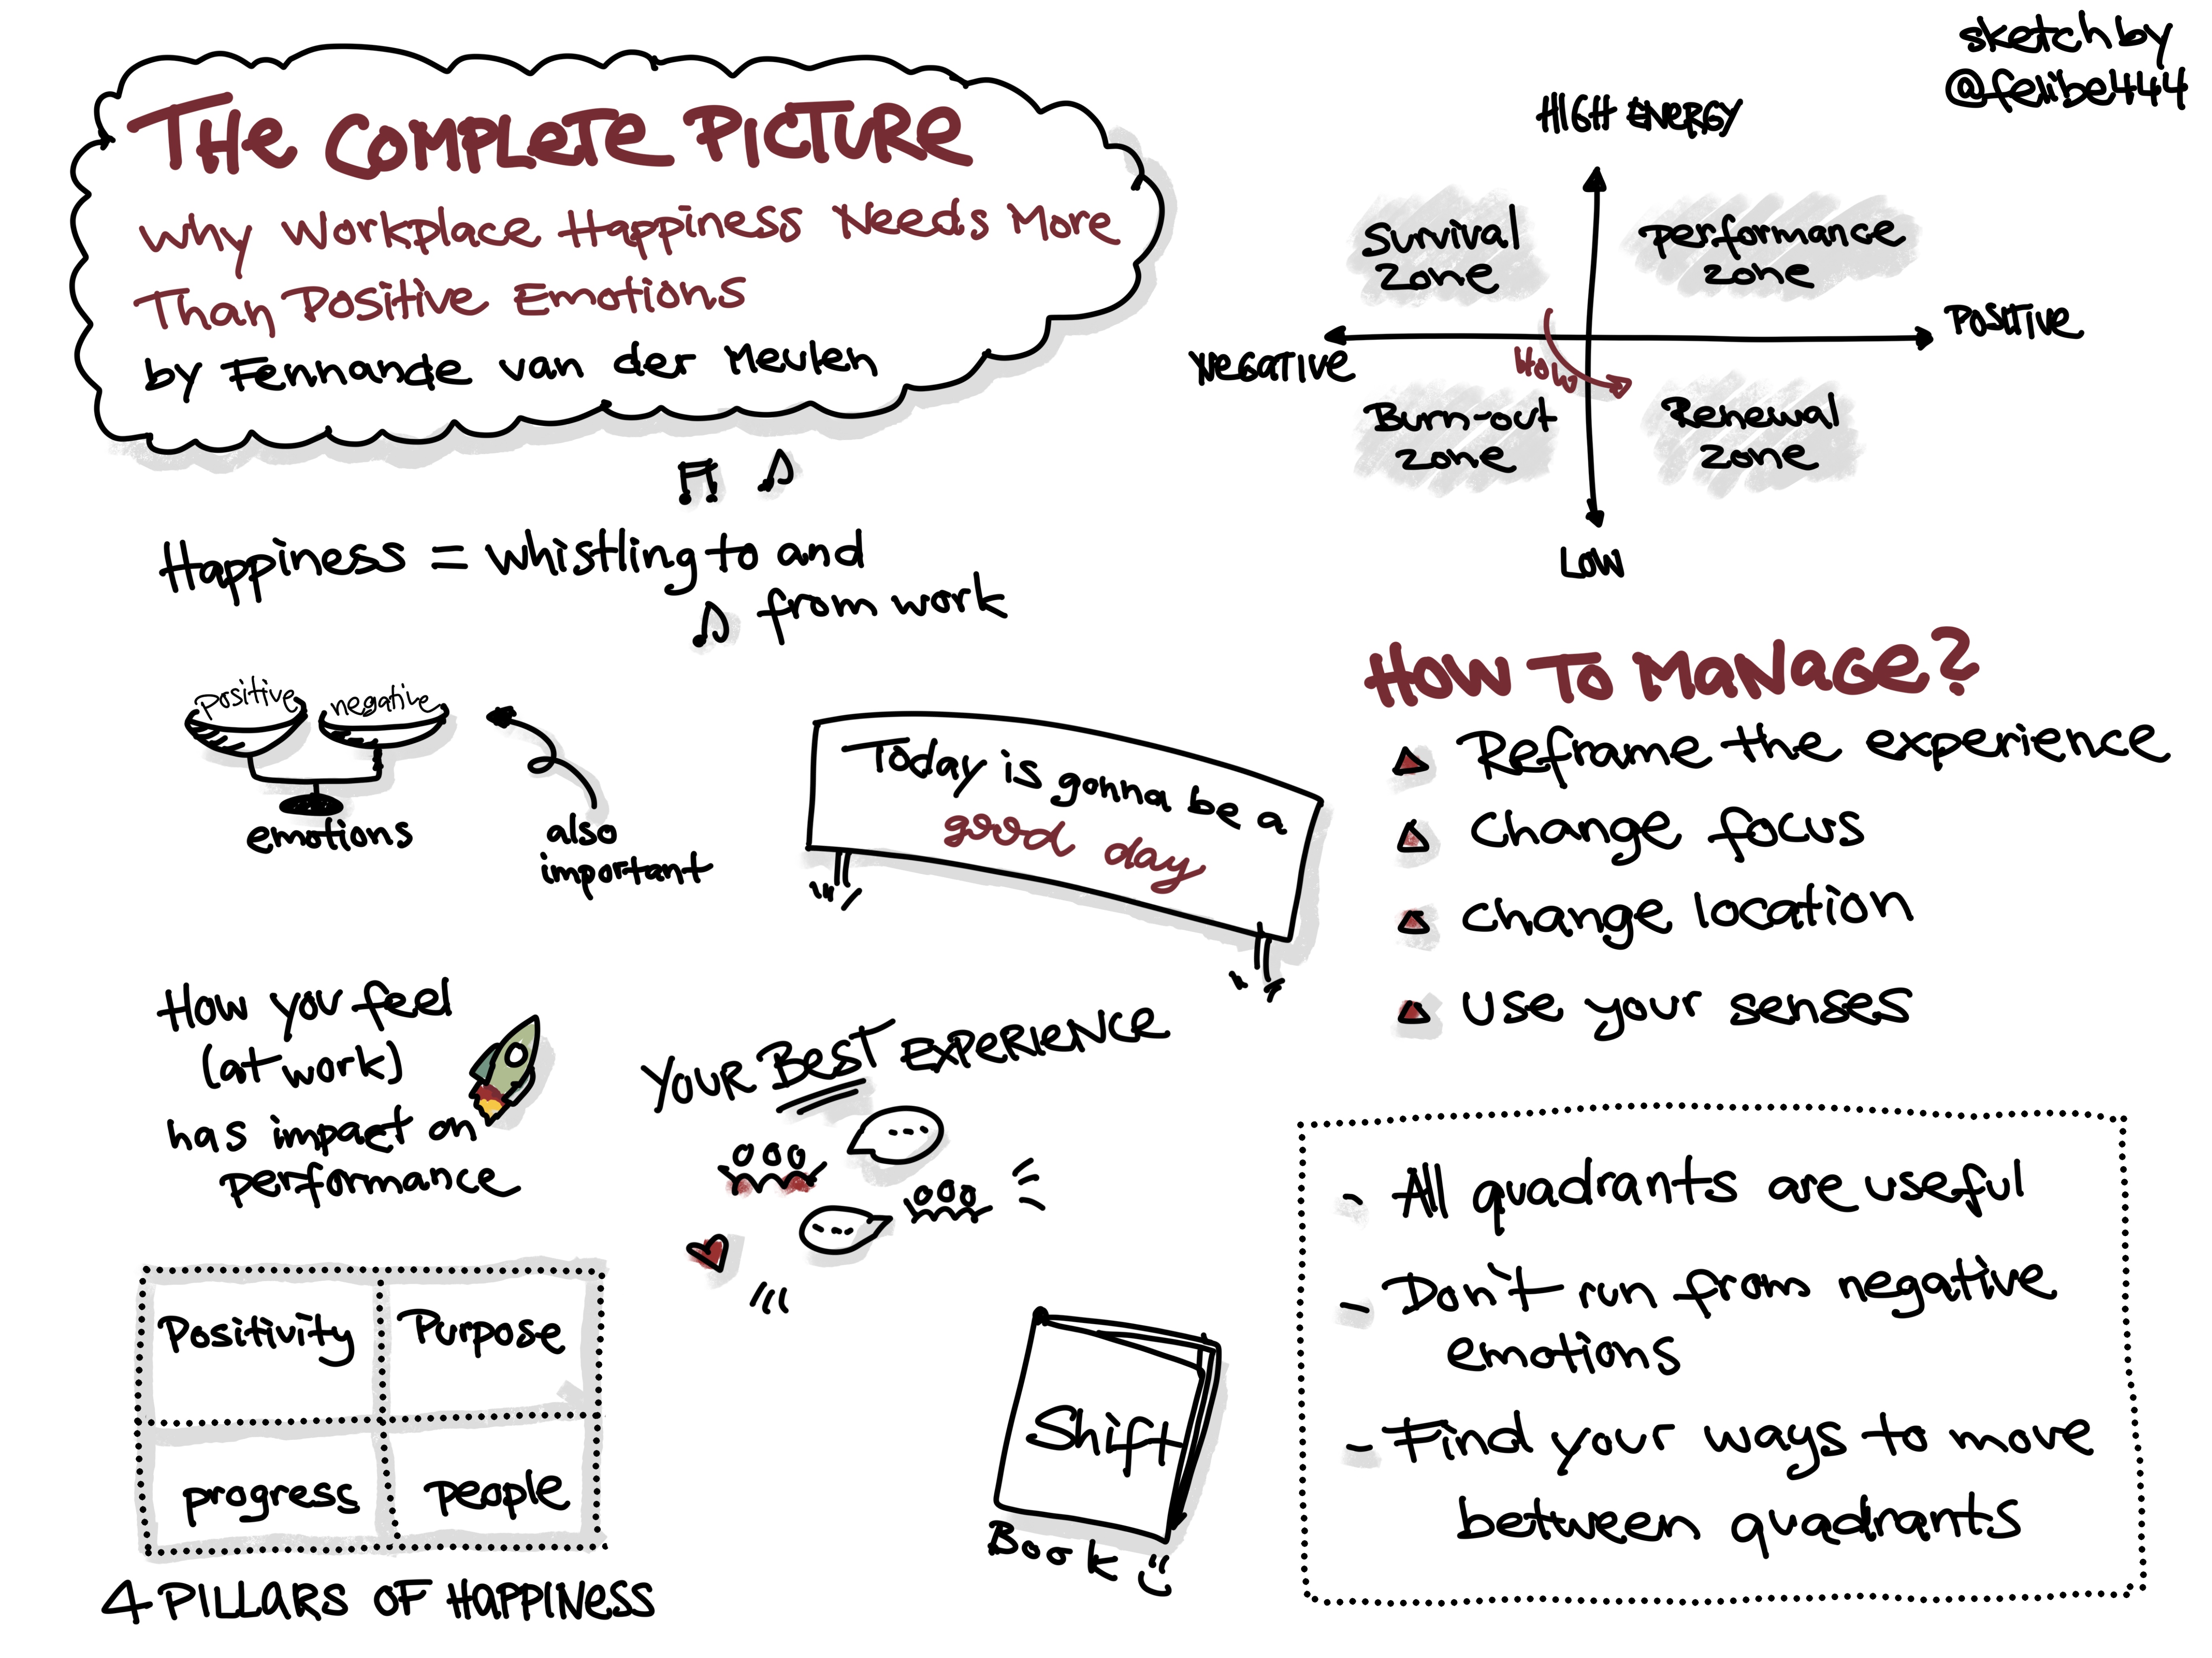 sketch by
@felibe444
THE COMPLETE PICTURE
Why Workplace Happiness Needs More
Than Positive Emotions
by Fennande van der Meulen
HIGH ENERGY
Survival
zone
performance
zone
NEGATIVE
POSITIVE
HOW
Burn-out
zone
Renewal
zone
LOW
Happiness = whistling to and
from work
positive
negative
emotions
also
important
Today is gonna be a
good day
HOW TO MANAGE?
Reframe the experience
Change focus
change location
use your senses
How you feel
(at work)
has impact on
performance
YOUR BEST EXPERIENCE
Positivity
Purpose
progress
people
4 PILLARS OF HAPPINESS
Shift
Book
- All quadrants are useful
- Don't run from negative
emotions
- Find your ways to move
between quadrants